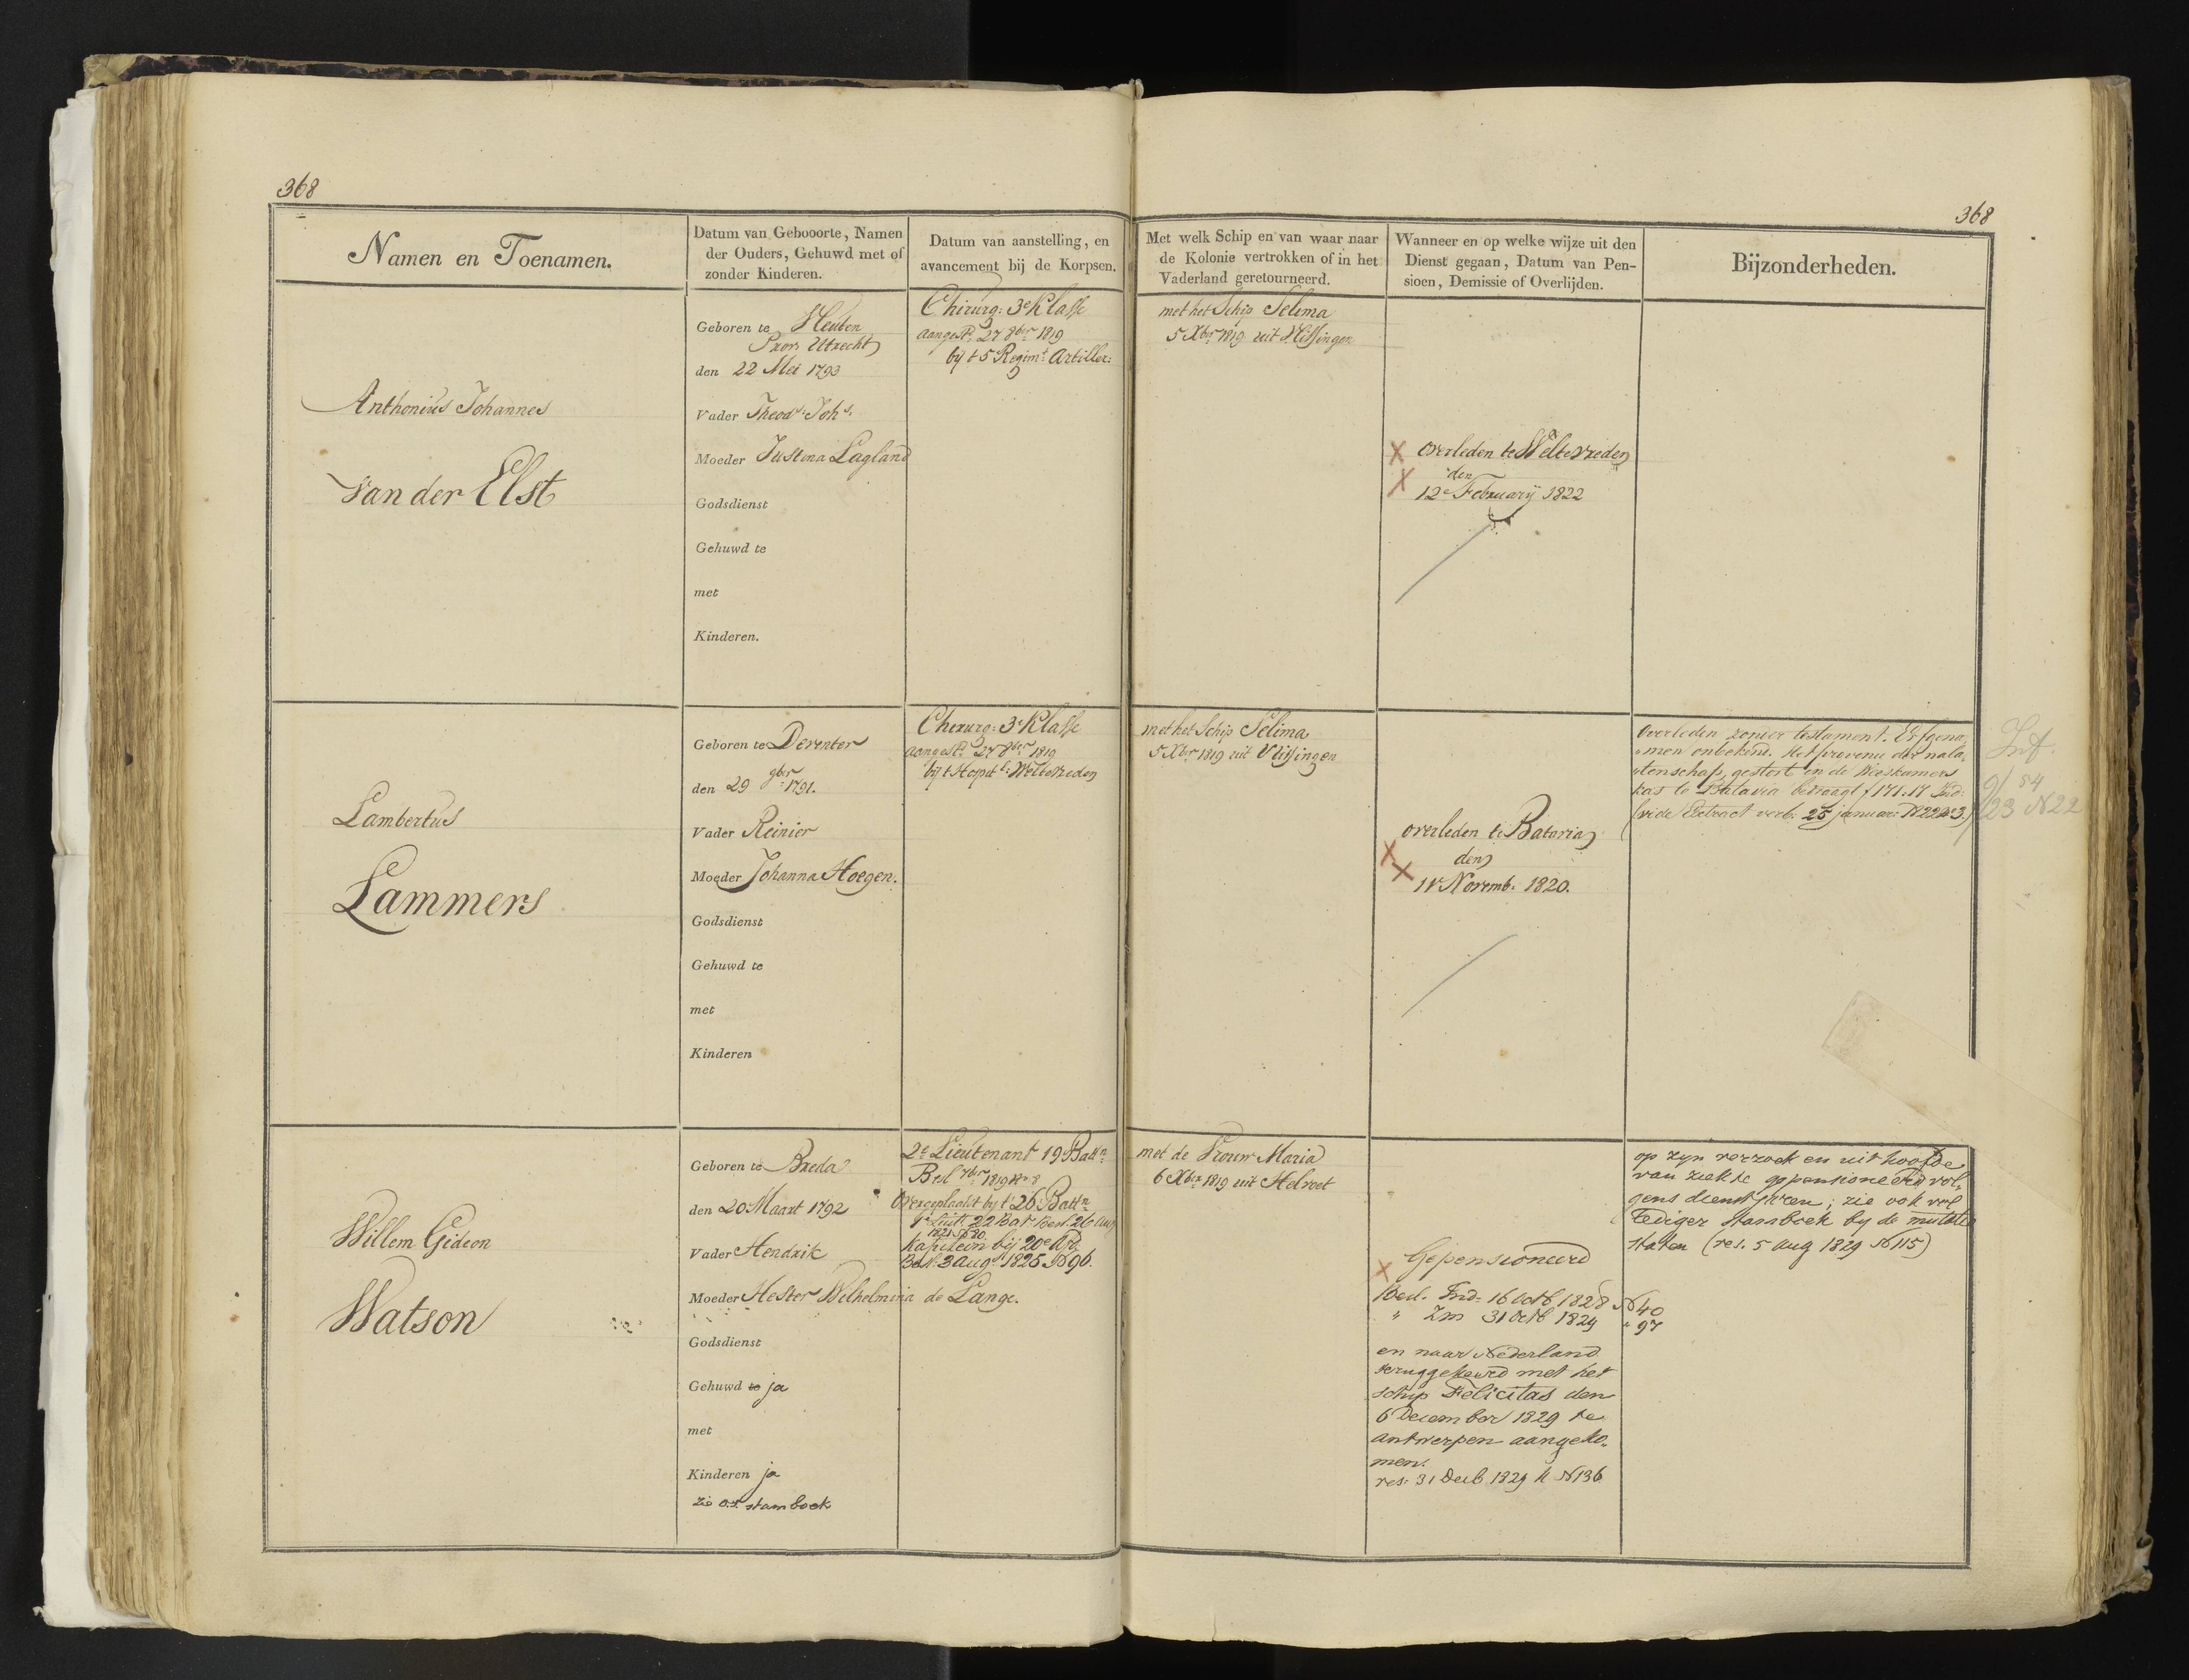 368
368
Namen en Toenamen.
Datum van Gebooorte, Namen
der Ouders, Gehuwd met of
zonder Kinderen.
Datum van aanstelling, en
avancement bij de Korpsen.
Met welk Schip en van waar naar
de Kolonie vertrokken of in het
Vaderland geretourneerd.
Wanneer en op welke wijze uit den
Dienst gegaan, Datum van Pen-
sioen, Demissie of Overlijden.
Bijzonderheden.
Anthonius Johannes
van der Elst
Geboren te Heuten
Prov. Utrecht
den 22 Mei 1793
Vader Theods. Johs.
Moeder Justina Lagland
Godsdienst
Gehuwd te
met
Kinderen.
Chirurg: 3e Klasse
aangest. 27 8ber 1819
bij t 5 Regimt. Artiller:
met het Schip Selima
5 Xber 1819 uit Vlissingen
overleden te Weltevreden
den
12e February 1822
Lambertus
Lammers
Geboren te Deventer
den 29 9ber 1791.
Vader Reinier
Moeder Johanna Hoegen.
Godsdienst
Gehuwd te
met
Kinderen
Chirurg: 3e Klasse
aangest. 27 8ber 1819
bij t Hopitl. Weltevreden
met het Schip Selima
5 Xber 1819 uit Vlissingen
overleden te Batavia
den
11e Novemb. 1820.
Overleden zonder testament. Erfgena-
men onbekend. Het provenu der nala-
tenschap, gestort in de Weeskamers
kas te Batavia bedraagt f 171.17 Ind:
(vide Extract verb. 25 januari N22
Willem Gideon
Watson
Geboren te Breda
den 20 Maart 1792
Vader Hendrik
Moeder Hester Wilhelmina de Lange.
Godsdienst
Gehuwd te ja
met
Kinderen ja
zie o.i. stamboek
2e Lieutenant 19 Battn.
Besl 7ber 1819 No 8
Overgeplaatst by t 26 Battn
1e Luit. 22 Bat Besl. 26 Aug
Kapitein bij 20e
Besl. 3 Aug. 1826 No 96.
met de Vrouw Maria
6 Xber 1819 uit Helvoet
Gepensioneerd
Besl. Ind. 16 octb 1828 No 40
" Zm 31 octb 1829 " 97
en naar Nederland
teruggekeerd met het
schip Felicitas den
6 December 1829 te
Antwerpen aangeko-
men.
res. 31 Decb. 1829 N136
op zyn verzoek en uit hoofde
van ziekte gepensioneerd vol-
gens dienstjaren; zie ook vol
lediger stamboek by de mutatie
staten (res. 5 aug 1829 No 115)